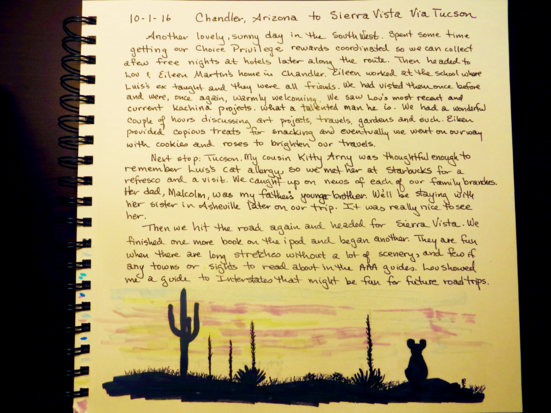 10-1-16 Chandler, Arizona to Sierra Vista Via Tucson
Another lovely, sunny day in the Southwest. Spent some time
getting our Choice Privilege rewards coordinated so we can collect
a few free nights at hotels later along the route. Then headed to
Lou & Eileen Martin's home in Chandler. Eileen worked at the school where
Luis's ex taught and they were all friends. We had visited them once before
and were, once again, warmly welcoming. We saw Lou's most recent and
current kachina projects. What a talented man he is. We had a wonderful
couple of hours discussing art projects, travels, gardens and such. Eileen
provided copious treats for snacking and eventually we went on our way
with cookies and roses to brighten our travels.
Next stop: Tucson. My cousin Kitty Arny was thoughtful enough to
remember Luis's cat allergy, so we met her at Starbucks for a
refresco and a visit. We caught up on news of each of our family branches.
Her dad, Malcolm, was my father's younger brother. We'll be staying with
her sister in Asheville later on our trip. It was really nice to see
her.
Then we hit the road again and headed for Sierra Vista. We
finished one more book on the ipod and began another. They are fun
when there are long stretches without a lot of scenery, and few of
any towns or sights to read about in the AAA guides. Lou showed
me a guide to Interstates that might be fun for future road trips.